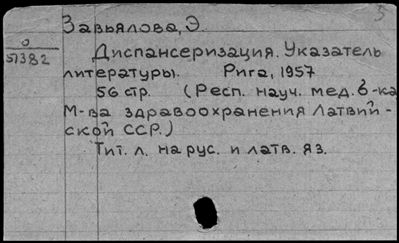 5
Завьялова, Э.
0
51382
Диспансеризация. Указатель
литературы. Рига, 1957
56 стр. (Респ. науч. мед. б-ка
М-ва здравоохранения Латвий-
ской ССР.)
Тит. л. на рус. и латв. яз.